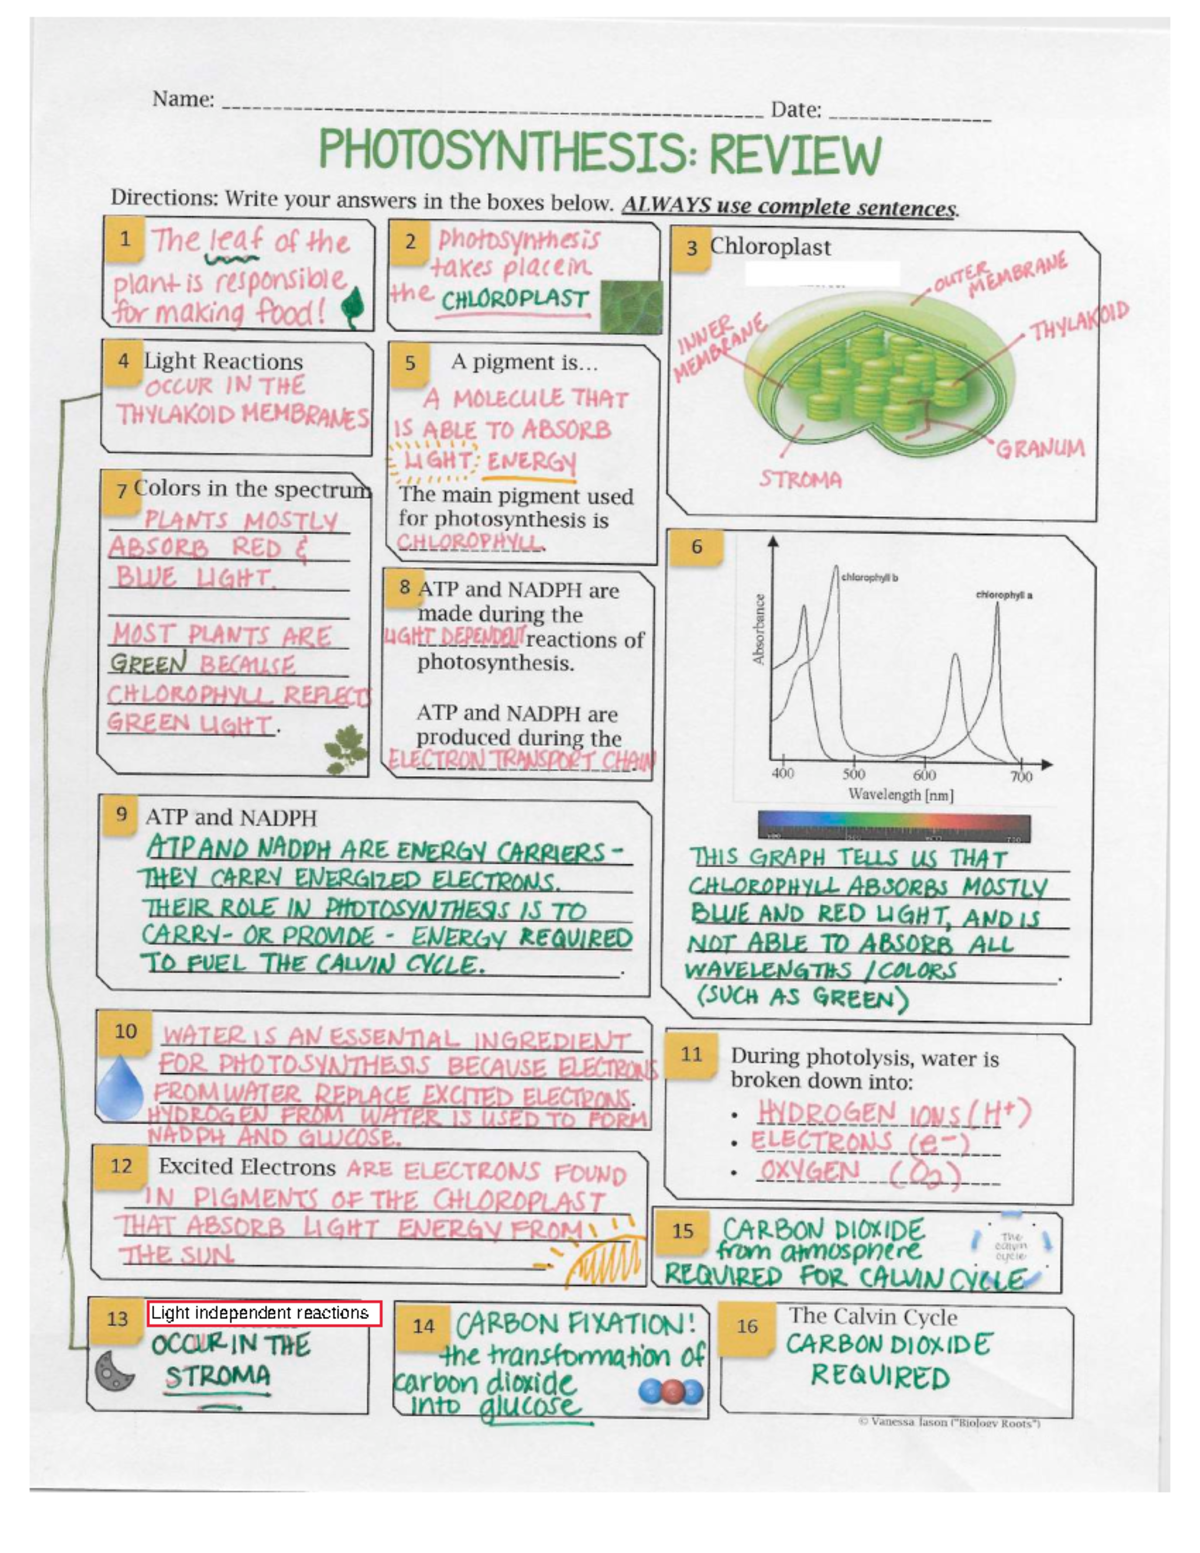 Name: ____ Date: ____
PHOTOSYNTHESIS: REVIEW
Directions: Write your answers in the boxes below. ALWAYS use complete sentences.
1 The leaf of the
plant is responsible
for making food!
2 Photosynthesis
takes place in
the CHLOROPLAST
3 Chloroplast
OUTER
MEMBRANE
THYLAKOID
INNER
MEMBRANE
GRANUM
STROMA
4 Light Reactions
OCCUR IN THE
THYLAKOID MEMBRANES
5 A pigment is...
A MOLECULE THAT
IS ABLE TO ABSORB
LIGHT ENERGY
The main pigment used
for photosynthesis is
CHLOROPHYLL.
6
chlorophyll b
chlorophyll a
Absorbance
400 500 600 700
Wavelength [nm]
THIS GRAPH TELLS US THAT
CHLOROPHYLL ABSORBS MOSTLY
BLUE AND RED LIGHT, AND IS
NOT ABLE TO ABSORB ALL
WAVELENGTHS / COLORS.
(SUCH AS GREEN)
7 Colors in the spectrum
PLANTS MOSTLY
ABSORB RED &
BLUE LIGHT.
MOST PLANTS ARE
GREEN BECAUSE
CHLOROPHYLL REFLECTS
GREEN LIGHT.
8 ATP and NADPH are
made during the
LIGHT DEPENDENT reactions of
photosynthesis.
ATP and NADPH are
produced during the
ELECTRON TRANSPORT CHAIN
9 ATP and NADPH
ATP AND NADPH ARE ENERGY CARRIERS -
THEY CARRY ENERGIZED ELECTRONS.
THEIR ROLE IN PHOTOSYNTHESIS IS TO
CARRY- OR PROVIDE - ENERGY REQUIRED
TO FUEL THE CALVIN CYCLE.
10 WATER IS AN ESSENTIAL INGREDIENT
FOR PHOTOSYNTHESIS BECAUSE ELECTRONS
FROM WATER REPLACE EXCITED ELECTRONS.
HYDROGEN FROM WATER IS USED TO FORM
NADPH AND GLUCOSE.
11 During photolysis, water is
broken down into:
• HYDROGEN IONS (H+)
• ELECTRONS (e-)
• OXYGEN (O2)
12 Excited Electrons ARE ELECTRONS FOUND
IN PIGMENTS OF THE CHLOROPLAST
THAT ABSORB LIGHT ENERGY FROM
THE SUN
15 CARBON DIOXIDE
from atmosphere
REQUIRED FOR CALVIN CYCLE
The
calvin
cycle
13 Light independent reactions
OCCUR IN THE
STROMA
14 CARBON FIXATION!
the transformation of
carbon dioxide
into glucose
16 The Calvin Cycle
CARBON DIOXIDE
REQUIRED
© Vanessa Jason ("Biology Roots")